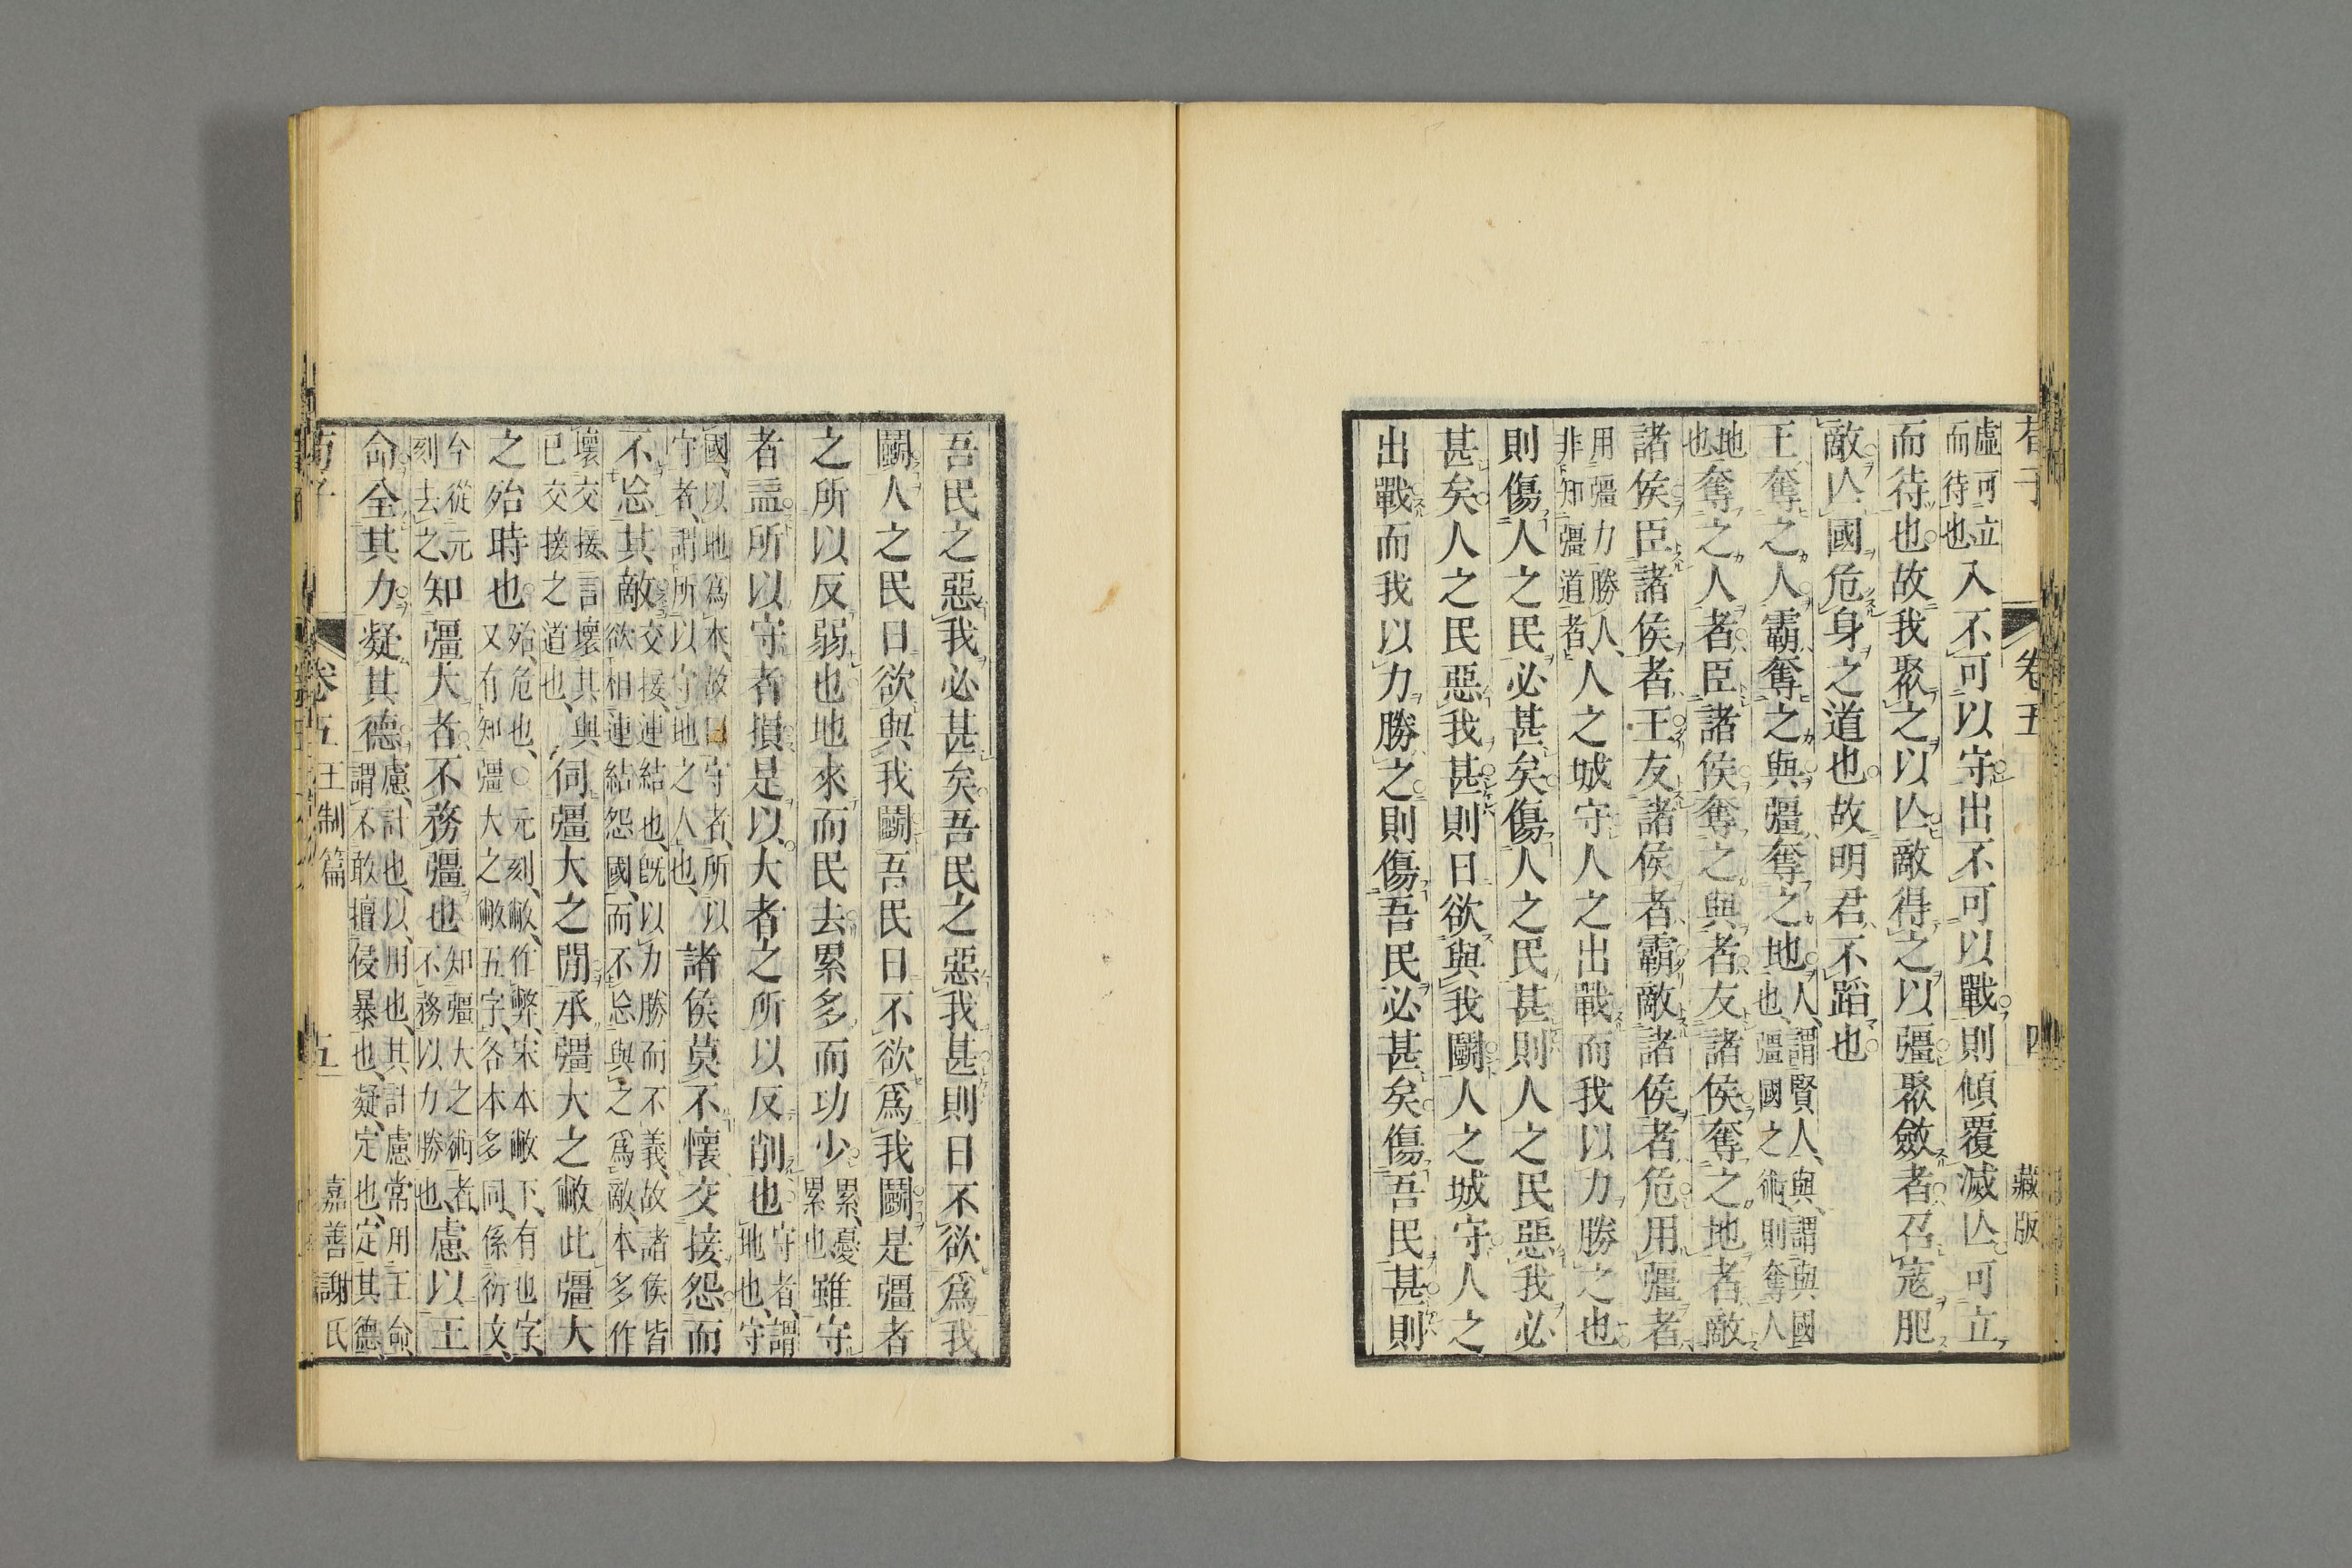 荀子　卷五　四　藏版
虛可立
而待也
入不可以守出不可以戰則傾覆滅亾可立
而待也故我聚之以亾敵得之以彊聚斂者召寇肥
敵亾國危身之道也故明君不蹈也
王奪之人霸奪之與彊奪之地
人、謂賢人、與、謂與國
也、彊國之術、則奪人
地
也
奪之人者臣諸侯奪之與者友諸侯奪之地者敵
諸侯臣諸侯者王友諸侯者霸敵諸侯者危用彊者
用彊力勝人、
非知彊道者
人之城守人之出戰而我以力勝之也
則傷人之民必甚矣傷人之民甚則人之民惡我必
甚矣人之民惡我甚則日欲與我鬭人之城守人之
出戰而我以力勝之則傷吾民必甚矣傷吾民甚則
吾民之惡我必甚矣吾民之惡我甚則日不欲爲我
鬭人之民日欲與我鬭吾民日不欲爲我鬭是彊者
之所以反弱也地來而民去累多而功少
累、憂
累也
雖守
者益所以守者損是以大者之所以反削也
守者、謂
地也、守
國、以地爲本、故曰守者、所以
守者、謂所以守地之人也、
諸侯莫不懷交接怨而
不忘其敵
交接、連結也、旣以力勝而不義、故諸侯皆
欲相連結怨國、而不忘與之爲敵、本多作
壞交接、言壞其與
已交接之道也、
伺彊大之閒承彊大之敝此彊大
之殆時也
殆、危也、○元刻、敝、作弊、宋本敝下、有也字、
又有知彊大之敝五字、各本多同、係衍文、
今從元
刻去之、
知彊大者不務彊也
知彊大之術者、
不務以力勝也、
慮以王
命全其力凝其德
慮、計也、以、用也、其計慮常用王命、
謂不敢擅侵暴也、凝、定也、定其德、
荀子　卷五　王制篇　五　嘉善謝氏